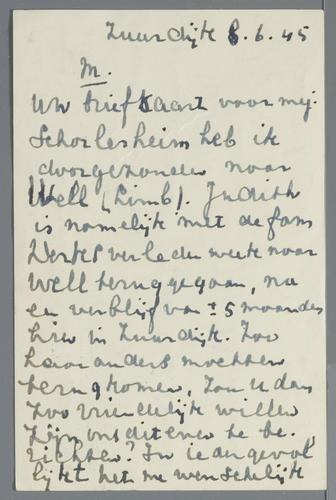 Zuurdijk 8.6.45
M.
Uw briefkaart voor mej.
Schorlesheim heb ik
doorgezonden naar
Well (Limb). Judith
is namelijk met de fam
verleden week naar
Well teruggegaan, na
een verblijf van ± 5 maanden
hier in Zuurdijk. Zoo
haar ouders mochten
terugkomen, zou U dan
zoo vriendelijk willen
zijn, ons dit even te be-
richten? In ieder geval
lijkt het me wenschelijk